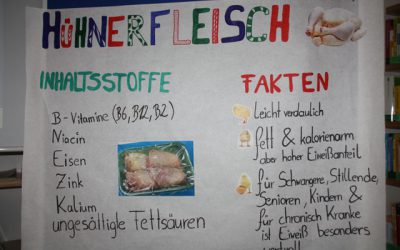 HÜHNERFLEISCH
INHALTSSTOFFE
B-Vitamine (B6, B12, B2)
Niacin
Eisen
Zink
Kalium
ungesättigte Fettsäuren
FAKTEN
Leicht verdaulich
fett & kalorienarm
aber hoher Eiweißanteil
für Schwangere, Stillende,
Senioren, Kindern &
für chronisch Kranke
ist Eiweiß besonders
wertvoll